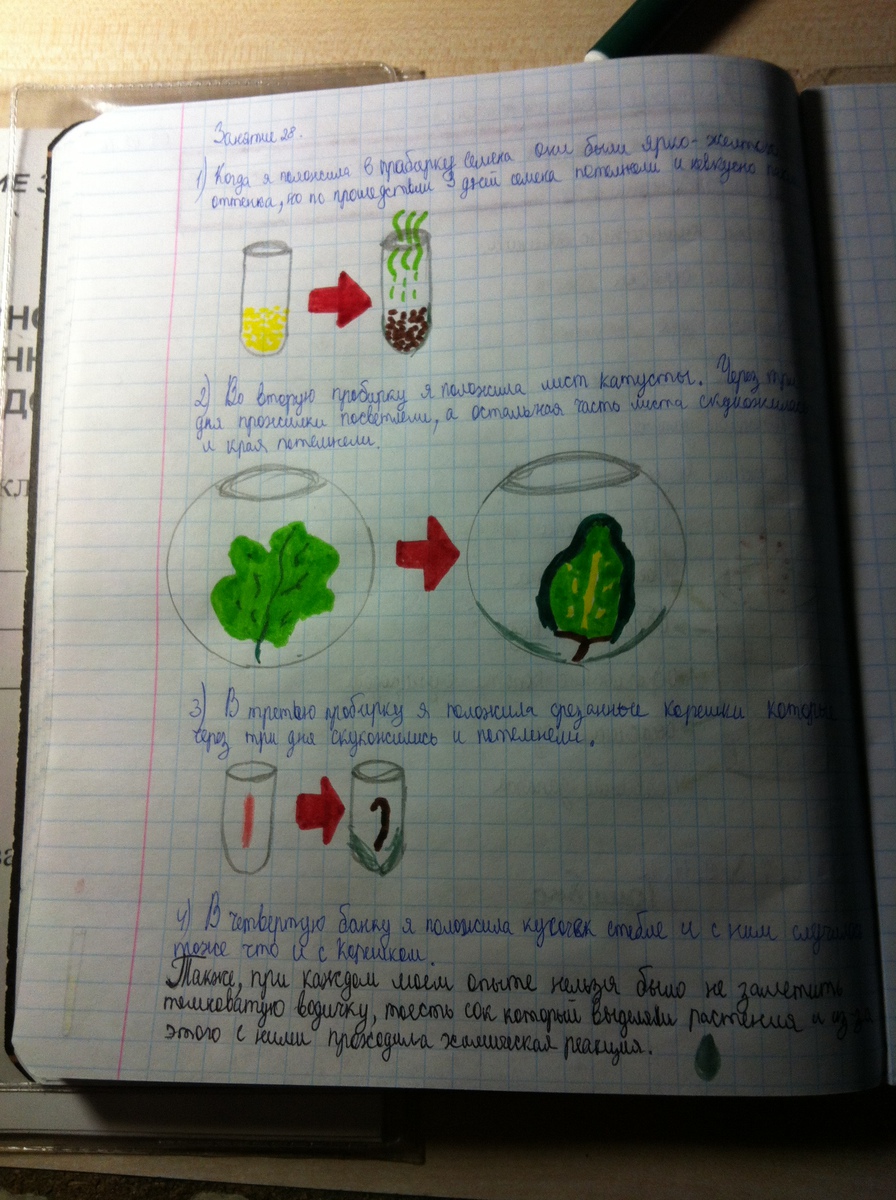 Занятие 28.
1) Когда я положила в прабирку семена они были ярко-желтого
оттенка, но по прошедствии 3 дней семена потемнели и невкусно
2) Во вторую пробирку я положила лист капусты. Через три
дня прожилки посветлели, а остальная часть листа скукожилась
и края потемнели.
3) В третью пробирку я положила срезанные корешки которые
через три дня скукожились и потемнели.
4) В четвертую банку я положила кусочек стебле и с ним случилось
тоже что и с корешком.
Также, при каждом моем опыте нельзя было не заметить
темноватую водичку, тоесть сок который выделяли растения и из-за
этого с ними проходила химическая реакция.